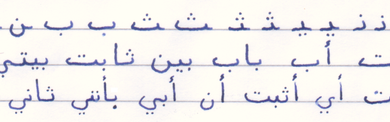 ذ ز ي ي ث ث ث ث ب ب ن
ت أب باب بين ثابت بيتي
ت أي أثبت أن أبي بأنني ثاني